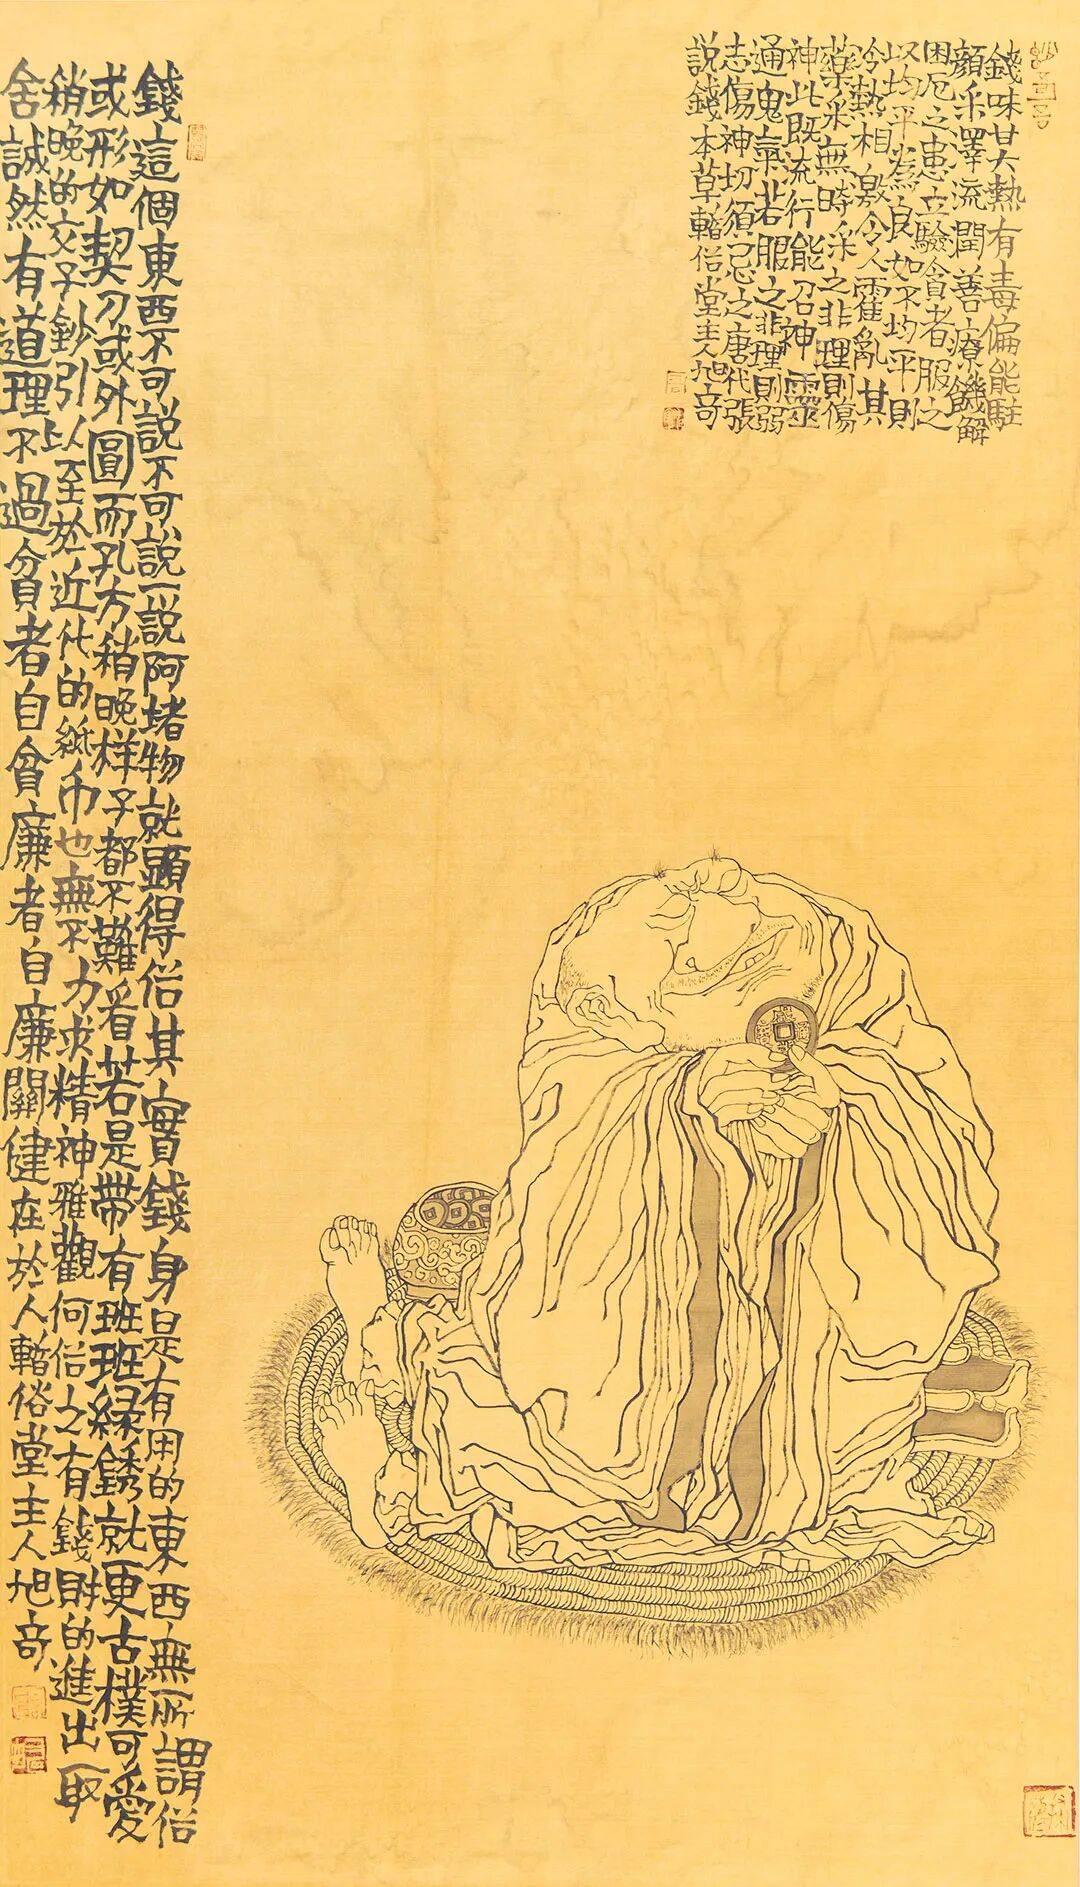 錢味甘大熱有毒偏能駐
顏采澤流潤善療饑解
困厄之患立驗貪者服之
以均平為良如不均平則
冷熱相激令人霍亂其
藥采無時采之非理則傷
神此既流行能召神靈
通鬼氣若服之非理則弱
志傷神切須忌之唐代張
說錢本草俗堂主人旭奇
錢這個東西不可說不可說一說阿堵物就顯得俗其實錢身是有用的東西無所謂俗
或形如契刀或外圓而孔方稍晚样子都不難看若是帶有班班緑銹就更古樸可愛
稍晚的交子鈔引以至於近代的紙币也無不力求精神雅觀何俗之有錢財的進出取
舍誠然有道理不過貪者自貪廉者自廉關健在於人俗堂主人旭奇